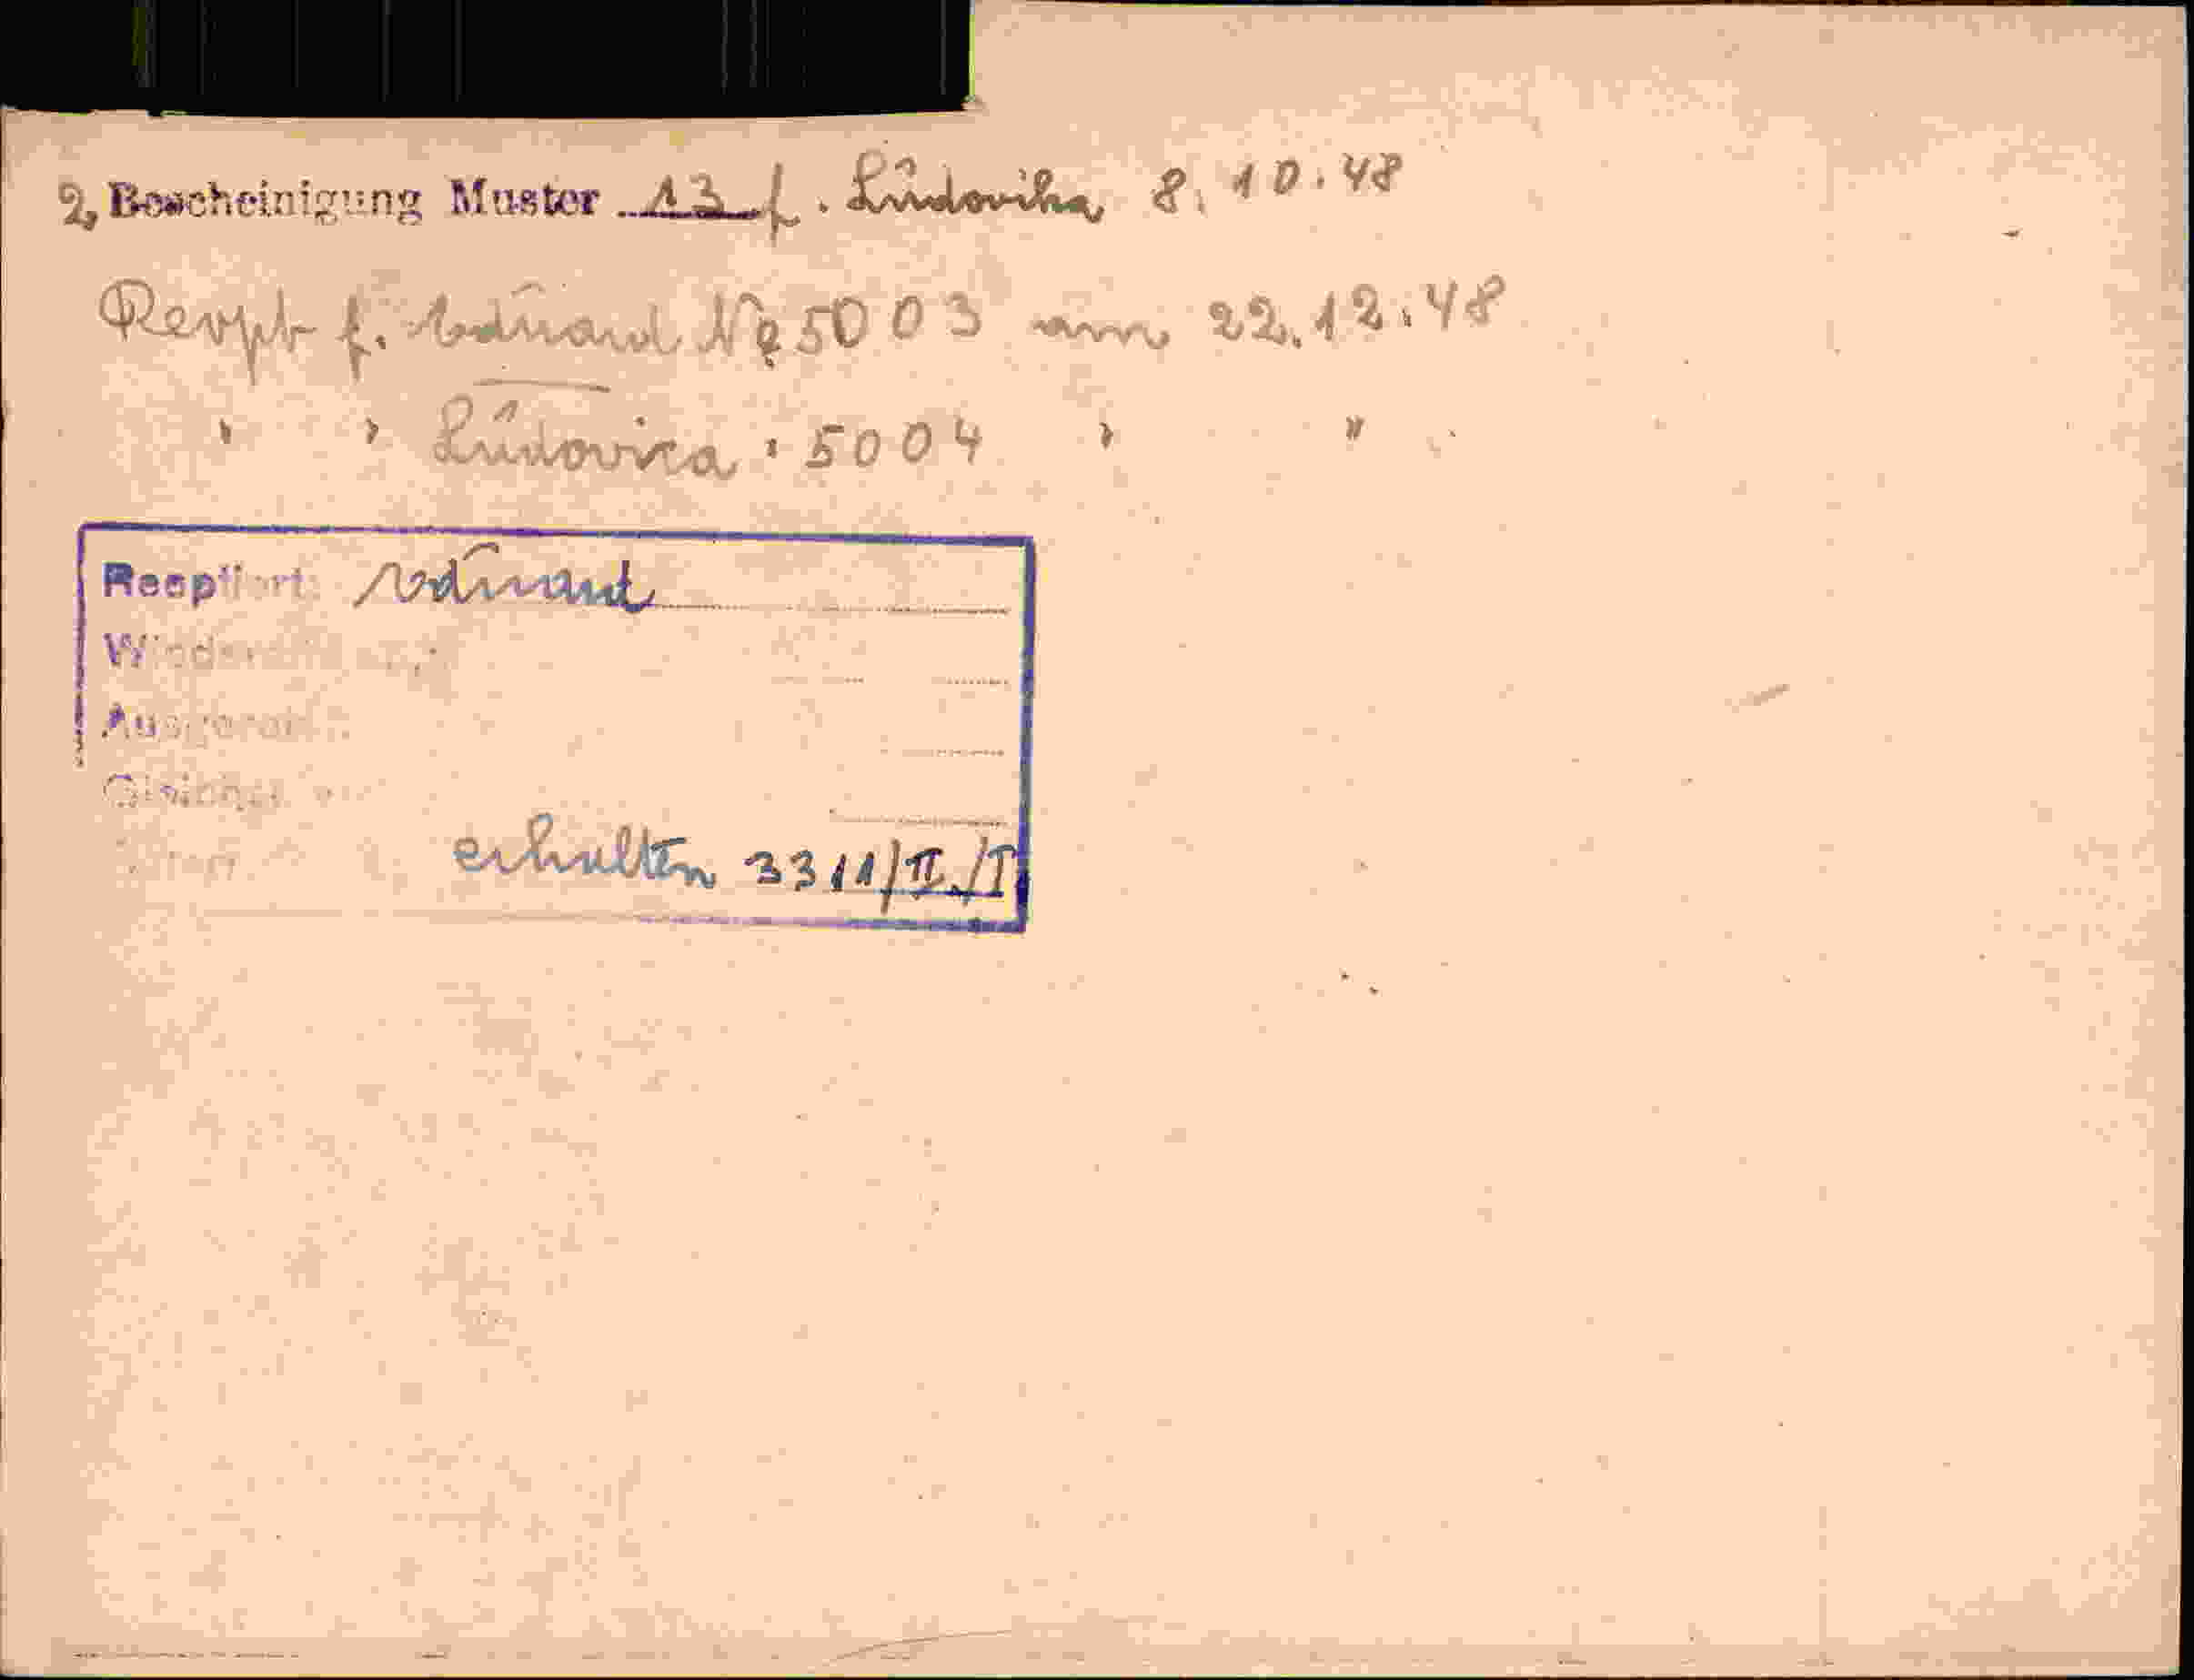 2, Bescheinigung Muster 13 f. Ludovika 8.10.48
Revpt f. Eduard № 5003 am 22.12.48
" " Ludovica " 5004 " "
Reeptiert: Eduard
erhalten 3311/II/I